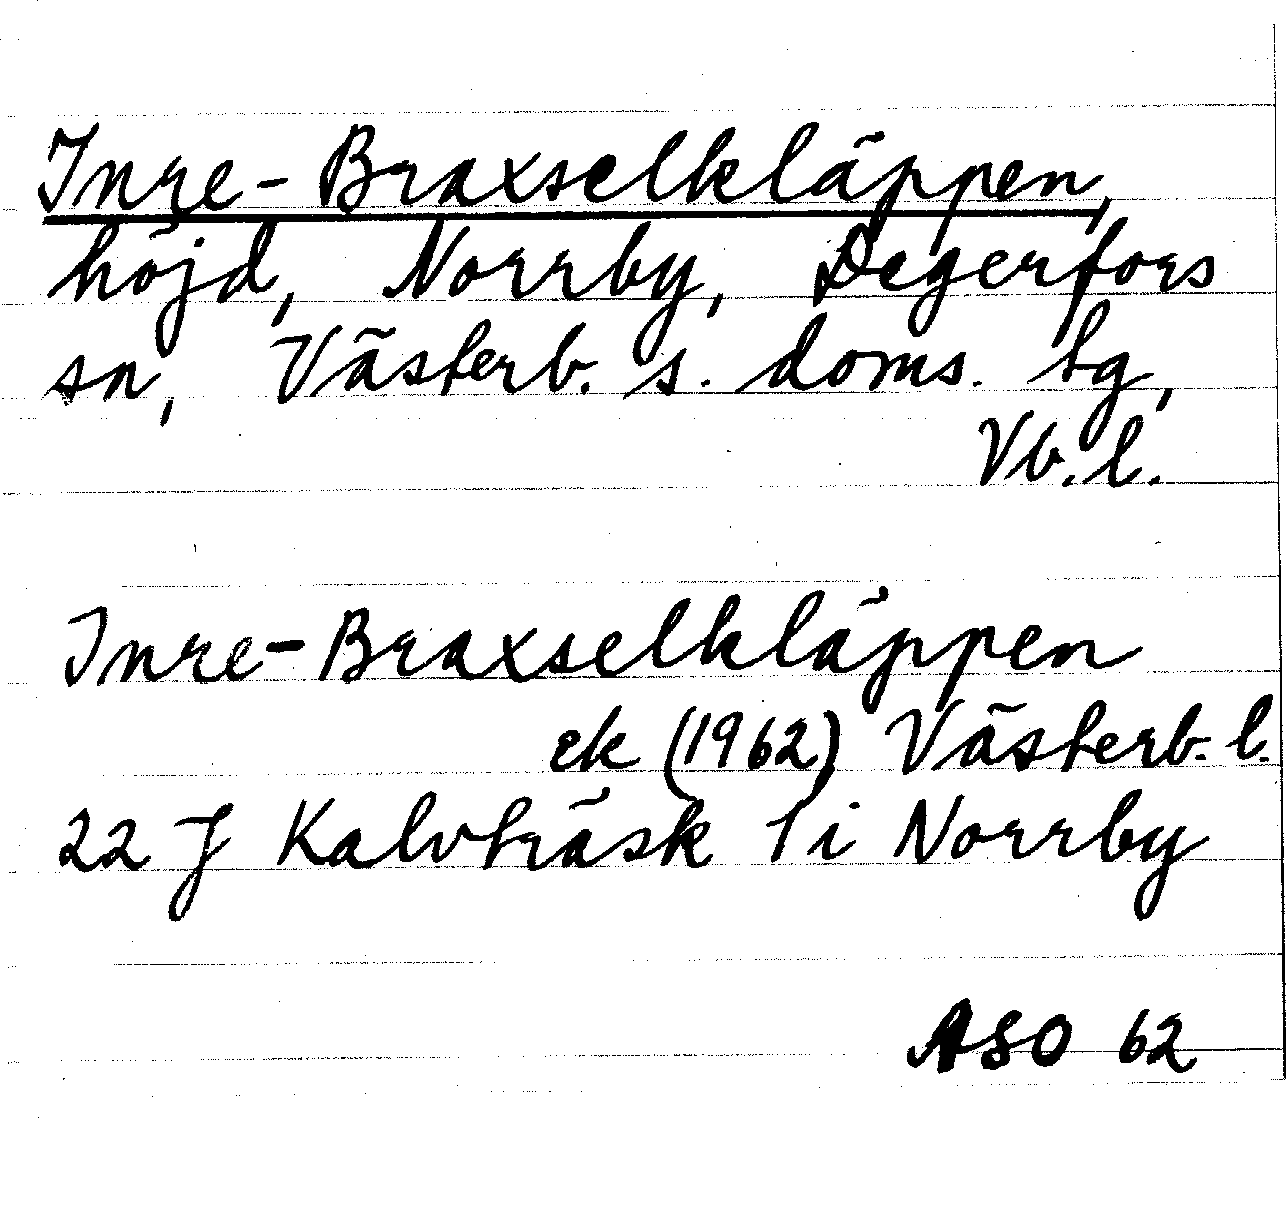 Inre-Braxselkläppen,
höjd, Norrby, Degerfors
sn, Västerb. s. doms. tg,
Vb. l.
Inre-Braxselkläppen
ek (1962) Västerb. l.
22 J Kalvträsk 1 i Norrby
ASO 62